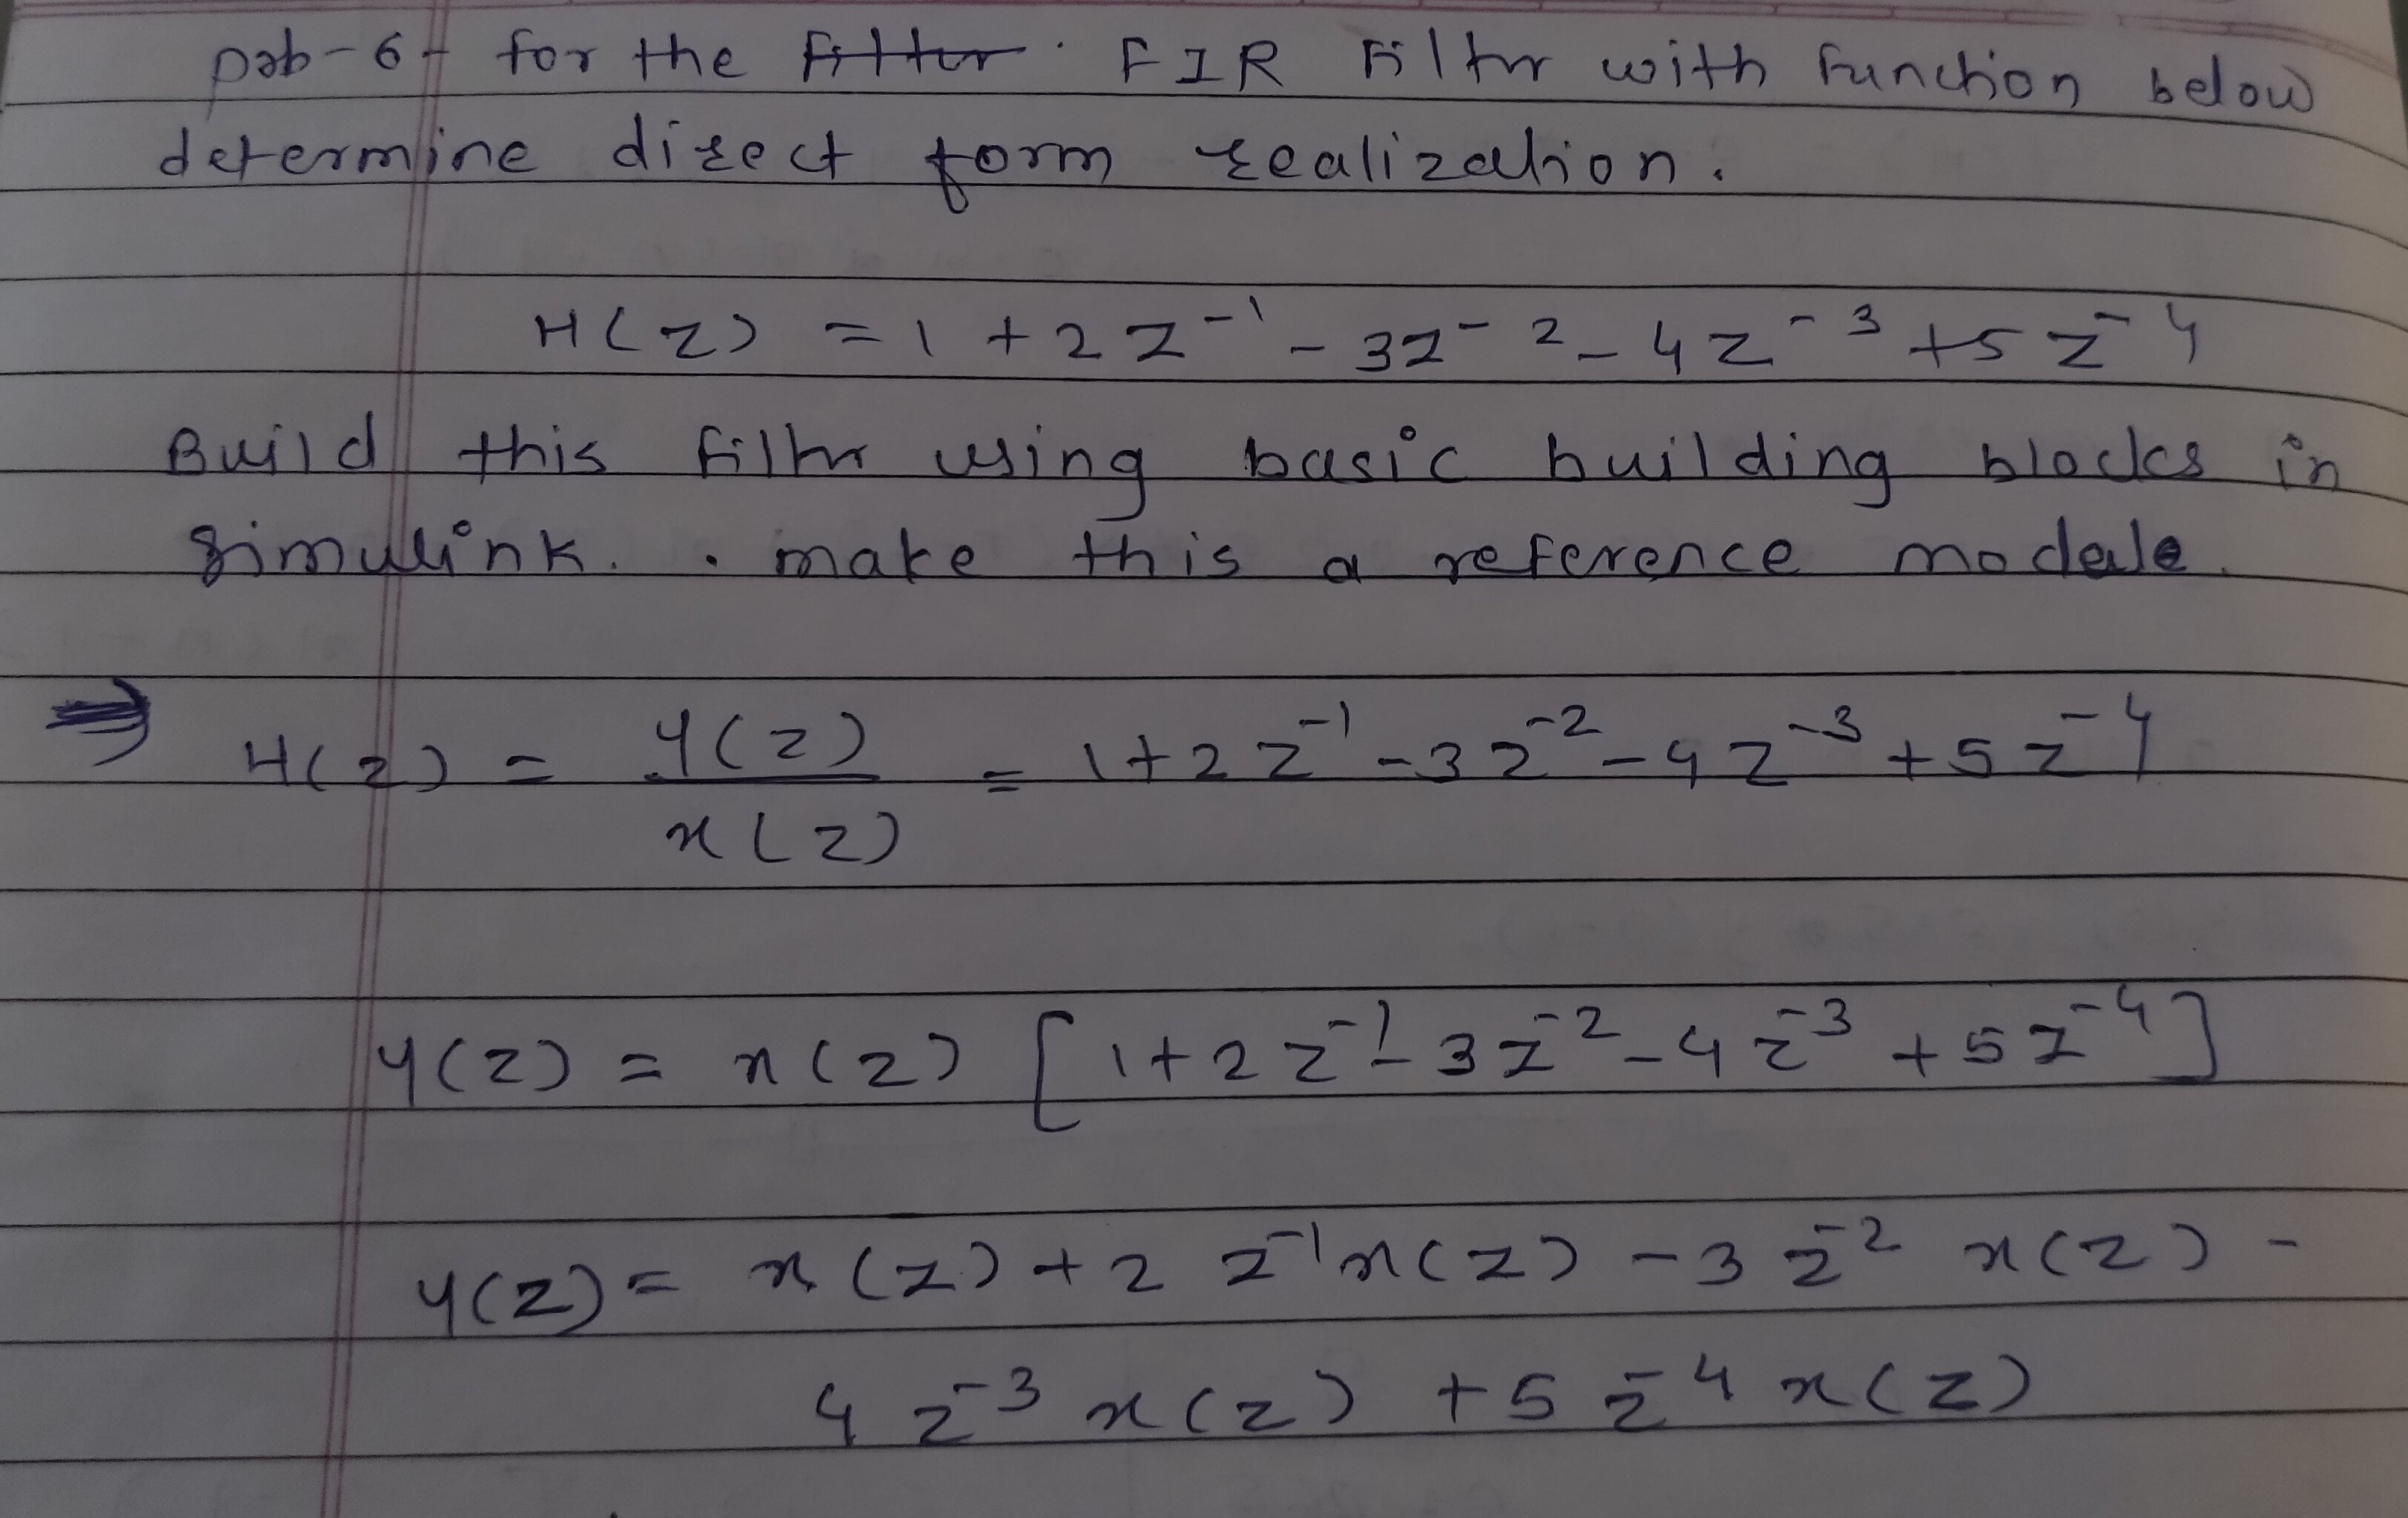 prob-6 for the FIR Filter with Function below
determine direct form realization.
H(z) = 1 + 2z⁻¹ - 3z⁻² - 4z⁻³ + 5z⁻⁴
Build this filter using basic building blocks in
simulink. . make this a reference modele.
⇒ H(z) = y(z)/x(z) = 1+2z⁻¹-3z⁻²-4z⁻³+5z⁻⁴
y(z) = x(z) [1+2z⁻¹-3z⁻²-4z⁻³+5z⁻⁴]
y(z) = x(z) + 2 z⁻¹x(z) - 3 z⁻² x(z) -
4 z⁻³ x(z) + 5 z⁻⁴ x(z)